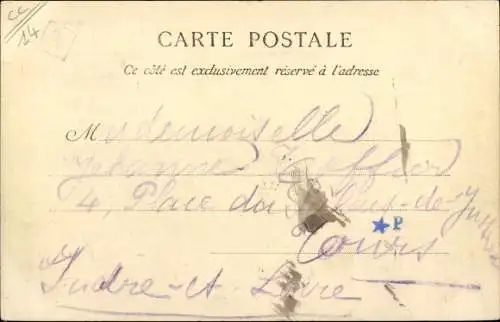 CC
14
CARTE POSTALE
Ce côté est exclusivement réservé à l'adresse
Mademoiselle
14, Place du
P
Tours
Indre-et-Loire